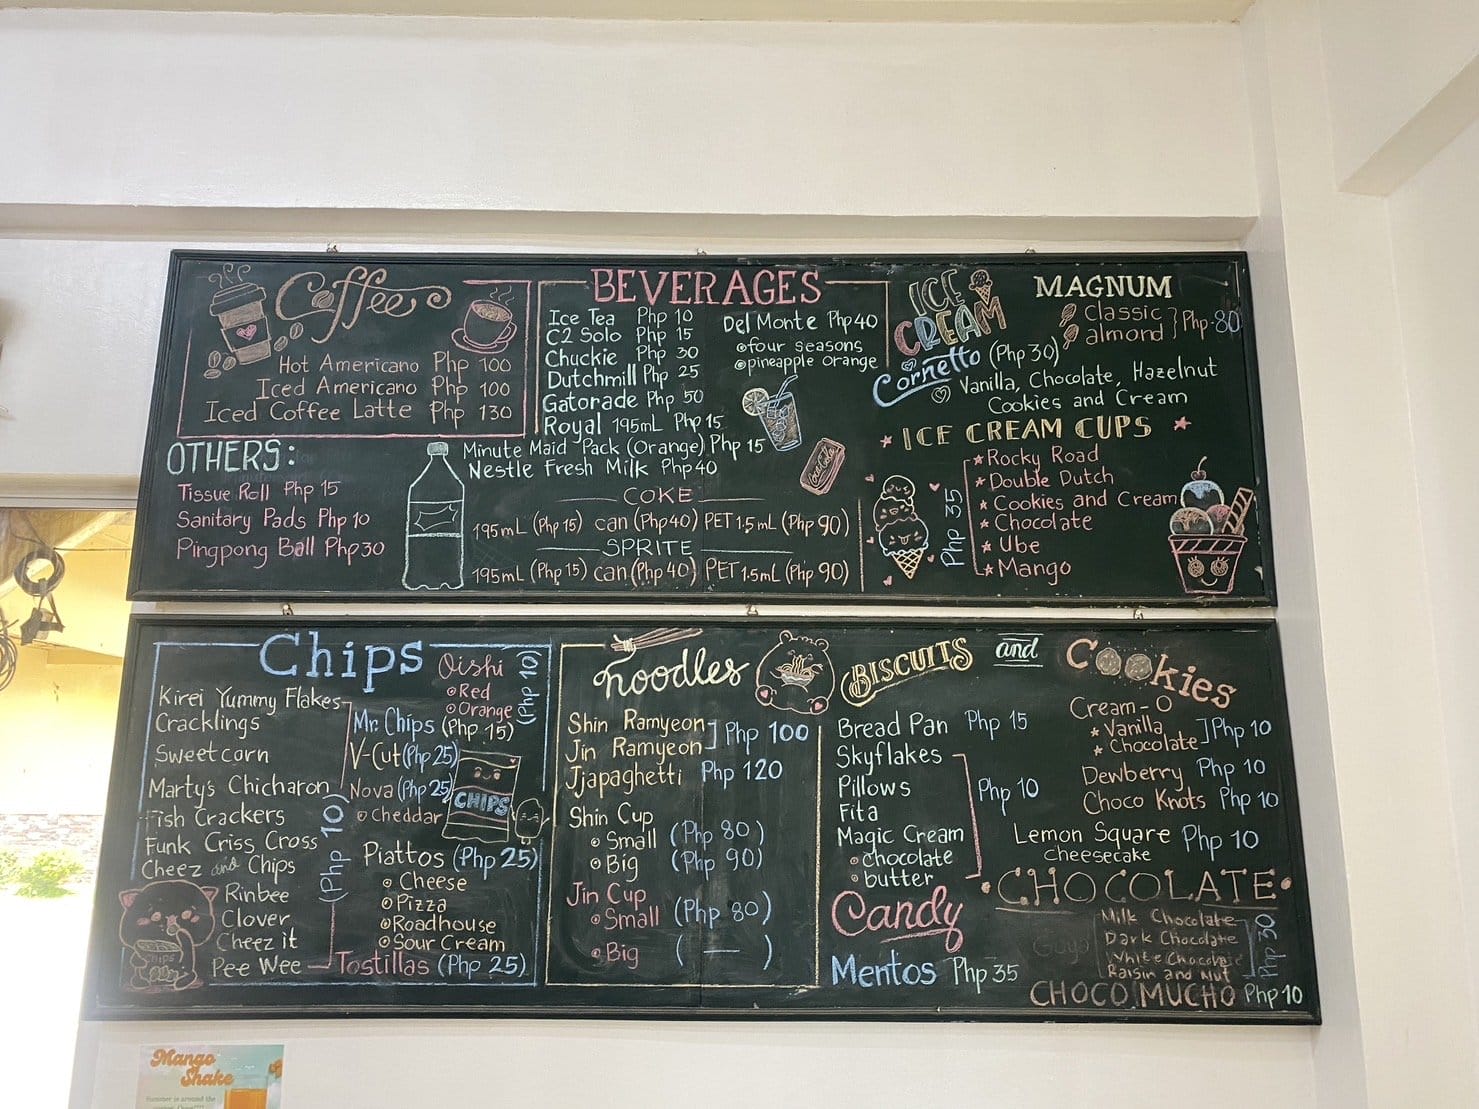 Coffee
Hot Americano Php 100
Iced Americano Php 100
Iced Coffee Latte Php 130
OTHERS:
Tissue Roll Php 15
Sanitary Pads Php 10
Pingpong Ball Php 30
BEVERAGES
Ice Tea Php 10
C2 Solo Php 15
Chuckie Php 30
Dutchmill Php 25
Gatorade Php 50
Royal 195mL Php 15
Minute Maid Pack (Orange) Php 15
Nestle Fresh Milk Php 40
Del Monte Php 40
four seasons
pineapple orange
Coca-Cola
COKE
195mL (Php 15) can (Php 40) PET 1.5mL (Php 90)
SPRITE
195mL (Php 15) can (Php 40) PET 1.5mL (Php 90)
ICE
CREAM
Cornetto (Php 30)
Vanilla, Chocolate, Hazelnut
Cookies and Cream
MAGNUM
Classic
almond
Php 80
ICE CREAM CUPS
Rocky Road
Double Dutch
Cookies and Cream
Chocolate
Ube
Mango
Php 35
Chips
Kirei Yummy Flakes
Cracklings
Sweetcorn
Marty's Chicharon
Fish Crackers
Funk Criss Cross
Cheez and Chips
Rinbee
Clover
Cheez it
Pee Wee
(Php 10)
CHIPS
Oishi
Red
Orange
(Php 10)
Mr. Chips (Php 15)
V-Cut (Php 25)
Nova (Php 25)
Cheddar
CHIPS
Piattos (Php 25)
Cheese
Pizza
Roadhouse
Sour Cream
Tostillas (Php 25)
noodles
Shin Ramyeon
Jin Ramyeon
Php 100
Jjapaghetti Php 120
Shin Cup
Small (Php 80)
Big (Php 90)
Jin Cup
Small (Php 80)
Big ( — )
BISCUITS and Cookies
Bread Pan Php 15
Skyflakes
Pillows
Fita
Magic Cream
chocolate
butter
Php 10
Cream-O
Vanilla
Chocolate
Php 10
Dewberry Php 10
Choco Knots Php 10
Lemon Square Php 10
Cheesecake
Candy
Mentos Php 35
CHOCOLATE
Goya
Milk Chocolate
Dark Chocolate
White Chocolate
Raisin and Nut
Php 30
CHOCO MUCHO Php 10
Mango
Shake
Summer is around the